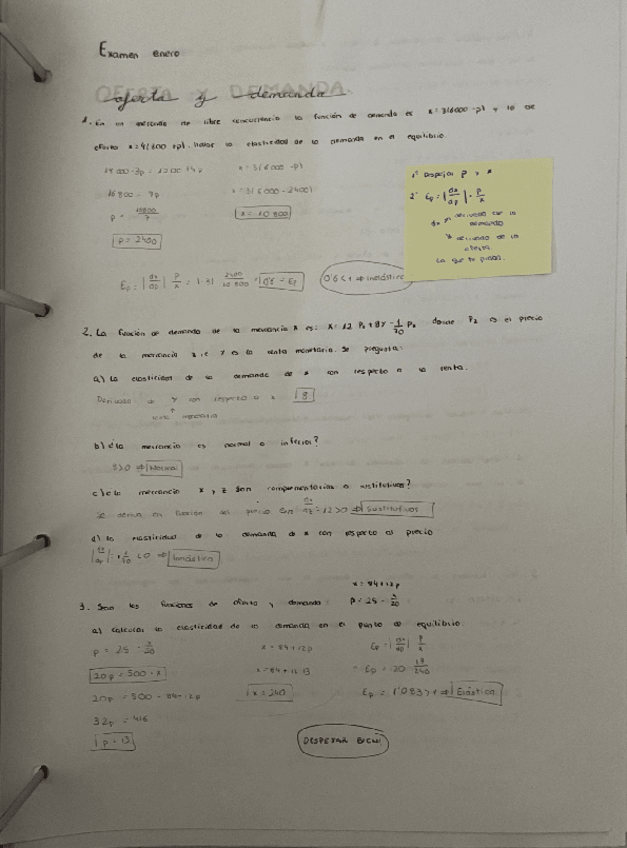 Examen enero
OFERTA Y DEMANDA
oferta y demanda
1. En un mercado de libre concurrencia la función de demanda es x = 3(6000 - p) y la de
oferta x = 4(300 + p). Hallar la elasticidad de la demanda en el equilibrio.
x = 3(6000 - p)
16800 = 7p
x = 3(6000 - 2400)
p = 16800/7
x = 10 800
p = 2400
Ep = |dx/dp| p/x = |-3| 2400/10 800 = 0'6 = Ep
0'6 < 1 ⇒ inelástica
1º Despejar P y x
2º Ep = |dx/dp| · p/x
dx
demanda
* derivada de la
oferta
La que te pidan.
2. La función de demanda de la mercancía x es: x = 12 Pz + 8Y - 1/20 Px donde Pz es el precio
de la mercancía z, e Y es la renta monetaria. Se pregunta:
a) La elasticidad de la demanda de x con respecto a la renta.
Derivada Y con respecto a x 8
renta monetaria
b) ¿la mercancía es normal o inferior?
8>0 ⇒ Normal
c) ¿la mercancía x y z son complementarias o sustitutivas?
Se deriva en función del precio en dx/dz = 12>0 ⇒ Sustitutivos
d) la elasticidad de la demanda de x con respecto al precio
<0 ⇒ Inelástica
x = 84+12p
3. Sean las funciones de oferta y demanda: p = 25 - x/20
a) calcular la elasticidad de la demanda en el punto de equilibrio
p = 25 - x/20
x = 84+12p
Ep = |dx/dp| p/x
20p = 500 - x
x = 84+12·13
Ep = 20 · 13/240
20p = 500 - 84 - 12p
x = 240
Ep = 1'083>1 ⇒ Elástica
32p = 416
p = 13
DESPEJAR BIEN!